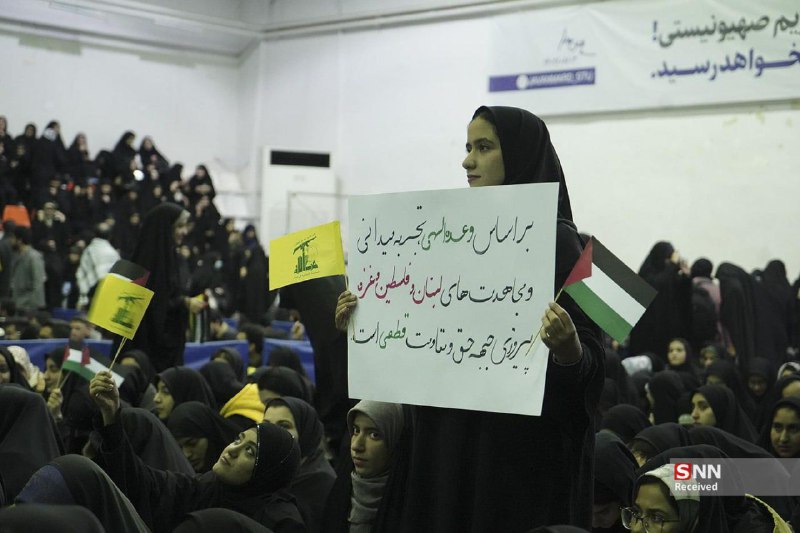 یم صهیونیستی!
نخواهد رسید.
بر اساس وعده الهی تجربه میدانی
و مجاهدت های لبنان و فلسطین و غزه
پیروزی جبهه حق و مقاومت قطعی است.
SNN
Received